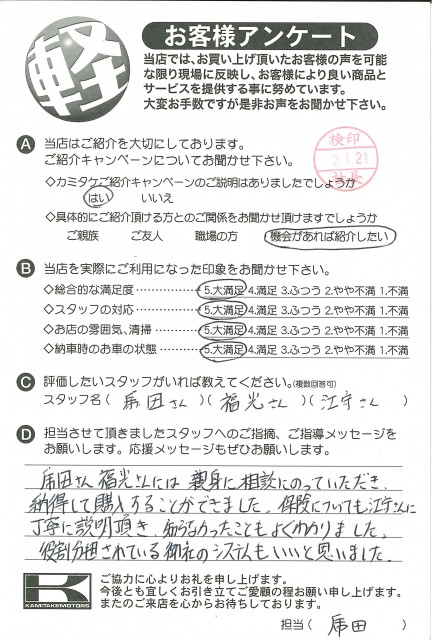 軽
お客様アンケート
当店では、お買い上げ頂いたお客様の声を可能
な限り現場に反映し、お客様により良い商品と
サービスを提供する事に努めています。
大変お手数ですが是非お声をお聞かせ下さい。
A 当店はご紹介を大切にしております。
ご紹介キャンペーンについてお聞かせ下さい。
検印
2.1.21
社長
◇カミタケご紹介キャンペーンのご説明はありましたでしょうか
はい いいえ
◇具体的にご紹介頂ける方とのご関係をお聞かせ頂けますでしょうか
ご親族 ご友人 職場の方 機会があれば紹介したい
B 当店を実際にご利用になった印象をお聞かせ下さい。
◇総合的な満足度 5.大満足 4.満足 3.ふつう 2.やや不満 1.不満
◇スタッフの対応 5.大満足 4.満足 3.ふつう 2.やや不満 1.不満
◇お店の雰囲気、清掃 5.大満足 4.満足 3.ふつう 2.やや不満 1.不満
◇納車時のお車の状態 5.大満足 4.満足 3.ふつう 2.やや不満 1.不満
C 評価したいスタッフがいれば教えてください。(複数回答可)
スタッフ名( 席田さん )( 福光さん )( 江守さん )
D 担当させて頂きましたスタッフへのご指摘、ご指導メッセージを
お願いします。応援メッセージもぜひお願いします。
席田さん 福光さんには 親身に相談にのっていただき、
納得して購入することができました。保険についても江守さんに
丁寧に説明頂き、知らなかったこともよくわかりました。
役割分担されている御社のシステムもいいと思いました。
K
KAMITAKEMOTORS
ご協力に心よりお礼を申し上げます。
今後とも宜しくお引き立てご愛顧の程お願い申し上げます。
またのご来店を心からお待ちしております。
担当( 席田 )